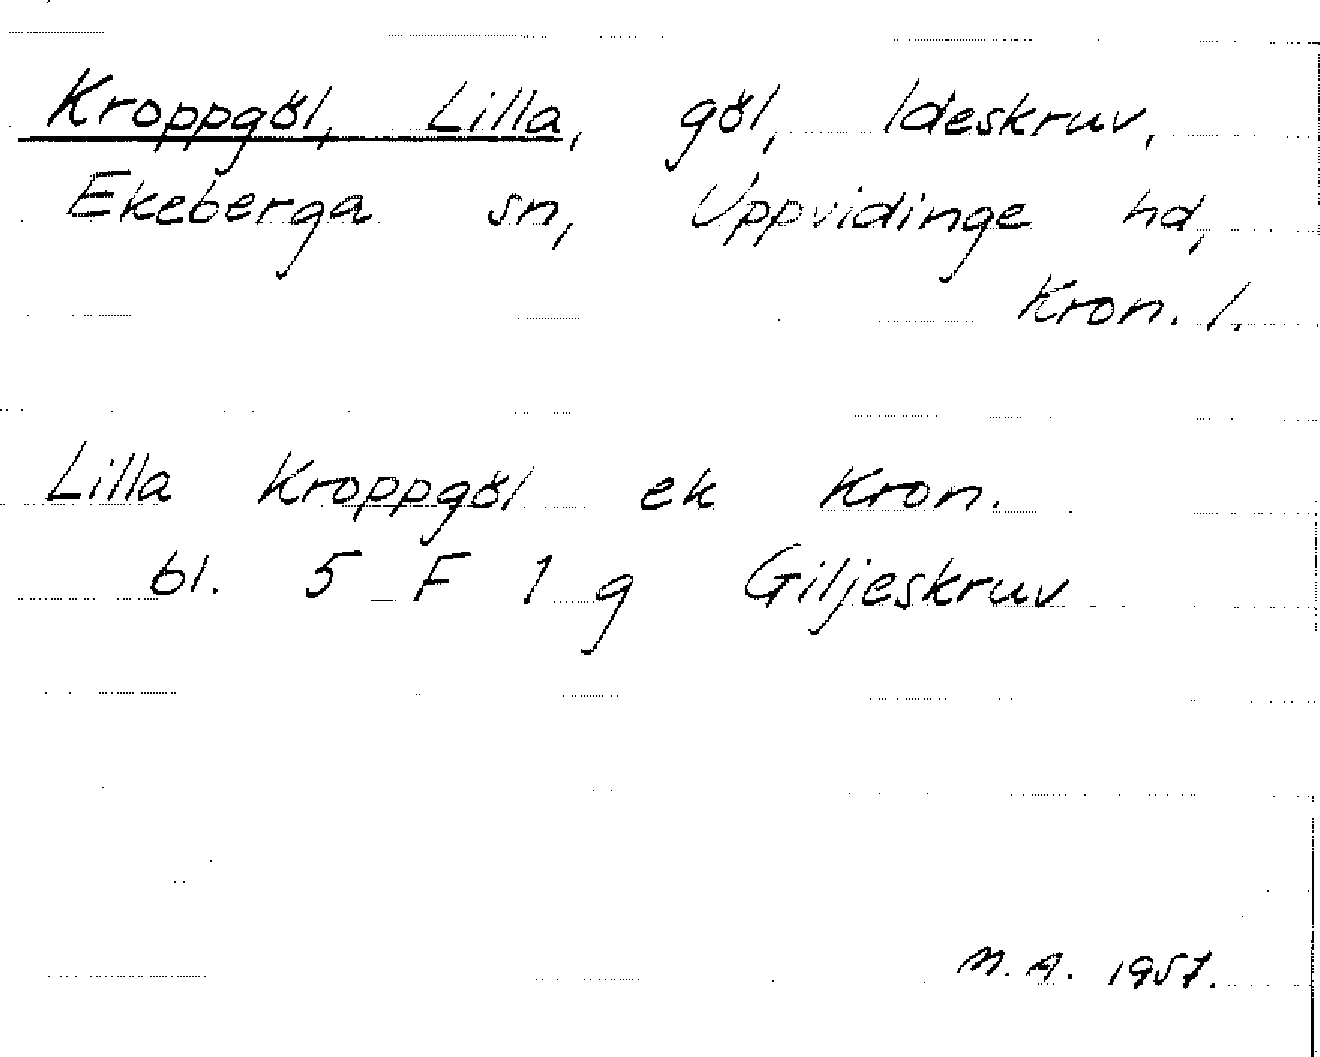 Kroppgöl, Lilla, göl, Ideskruv,
Ekeberga sn, Uppvidinge hd,
Kron. l.
Lilla Kroppgöl ek Kron.
bl. 5 F 1 g Giljeskruv
M. A. 1957.